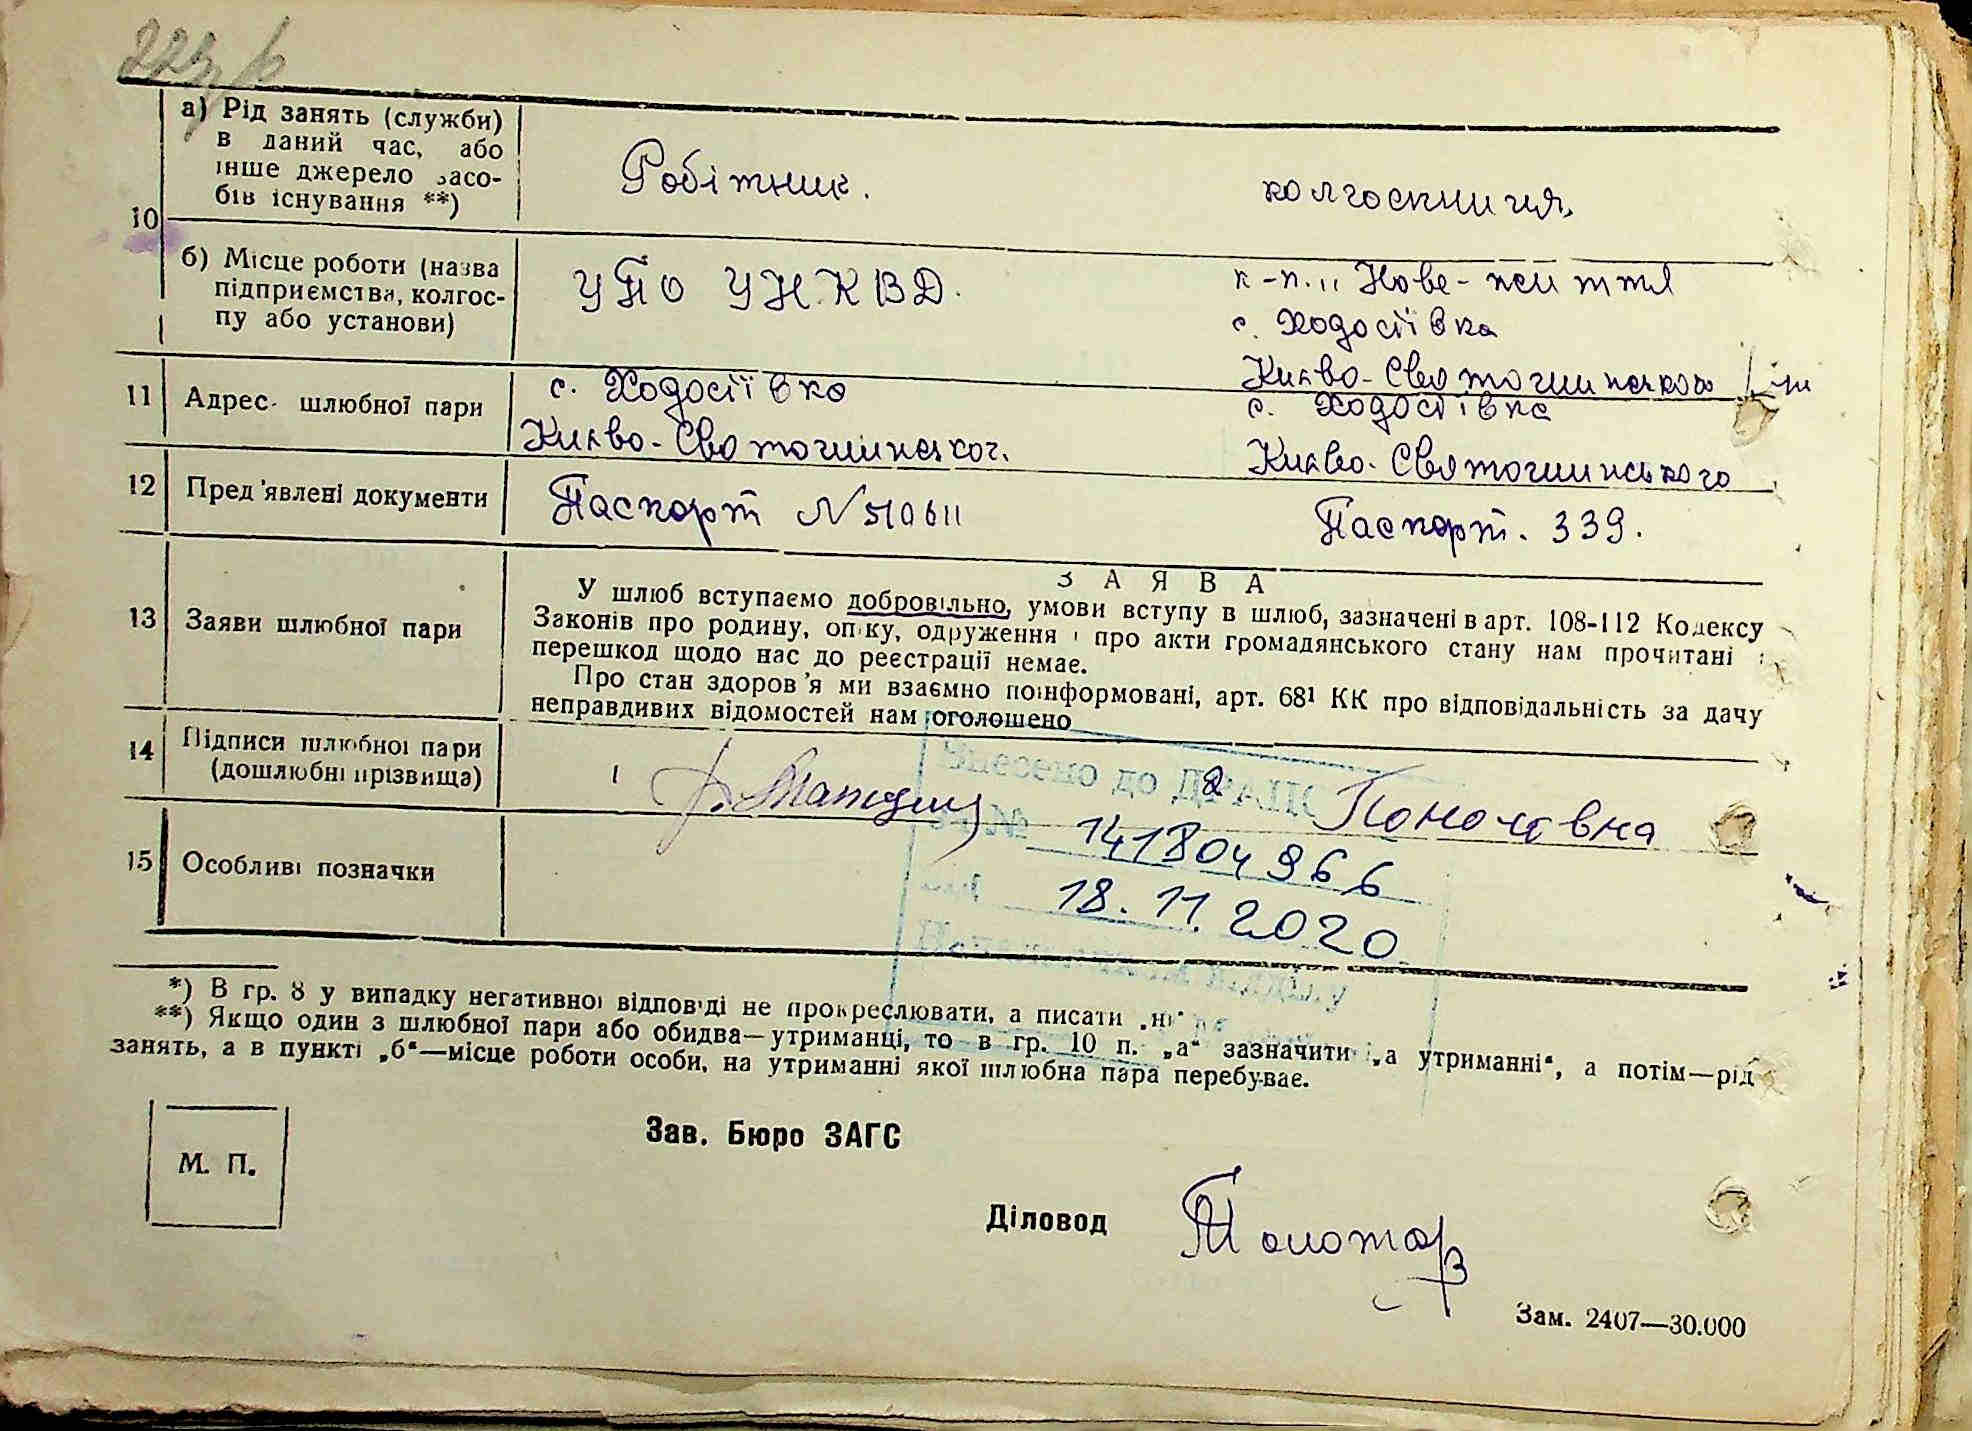 а) Рід занять (служби)
в даний час, або
інше джерело засо-
бів існування **)
Робітник.
колгоспниця.
10
б) Місце роботи (назва
підприємства, колгос-
пу або установи)
УПО УНКВД.
к-п. " Нове-життя
с. Ходосіївка
Києво-Святошинського
11
Адрес шлюбної пари
с. Ходосіївка
Києво-Святошинськог.
с. Ходосіївка
Києво-Святошинського
12
Пред'явлені документи
Паспорт N 510611
Паспорт. 339.
13
Заяви шлюбної пари
ЗАЯВА
У шлюб вступаємо добровільно, умови вступу в шлюб, зазначені в арт. 108-112 Кодексу
Законів про родину, опіку, одруження і про акти громадянського стану нам прочитані і
перешкод щодо нас до реєстрації немає.
Про стан здоров'я ми взаємно поінформовані, арт. 68¹ КК про відповідальність за дачу
неправдивих відомостей нам оголошено
14
Підписи шлюбної пари
(дошлюбні прізвища)
1
2
Внесено до ДРАЦС
№ 141804966
18.11.2020
15
Особливі позначки
*) В гр. 8 у випадку негативної відповіді не прокреслювати, а писати „ні“
**) Якщо один з шлюбної пари або обидва—утриманці, то в гр. 10 п. „а“ зазначити „на утриманні“, а потім—рід
занять, а в пункті „б“—місце роботи особи, на утриманні якої шлюбна пара перебуває.
М. П.
Зав. Бюро ЗАГС
Діловод
Зам. 2407—30.000